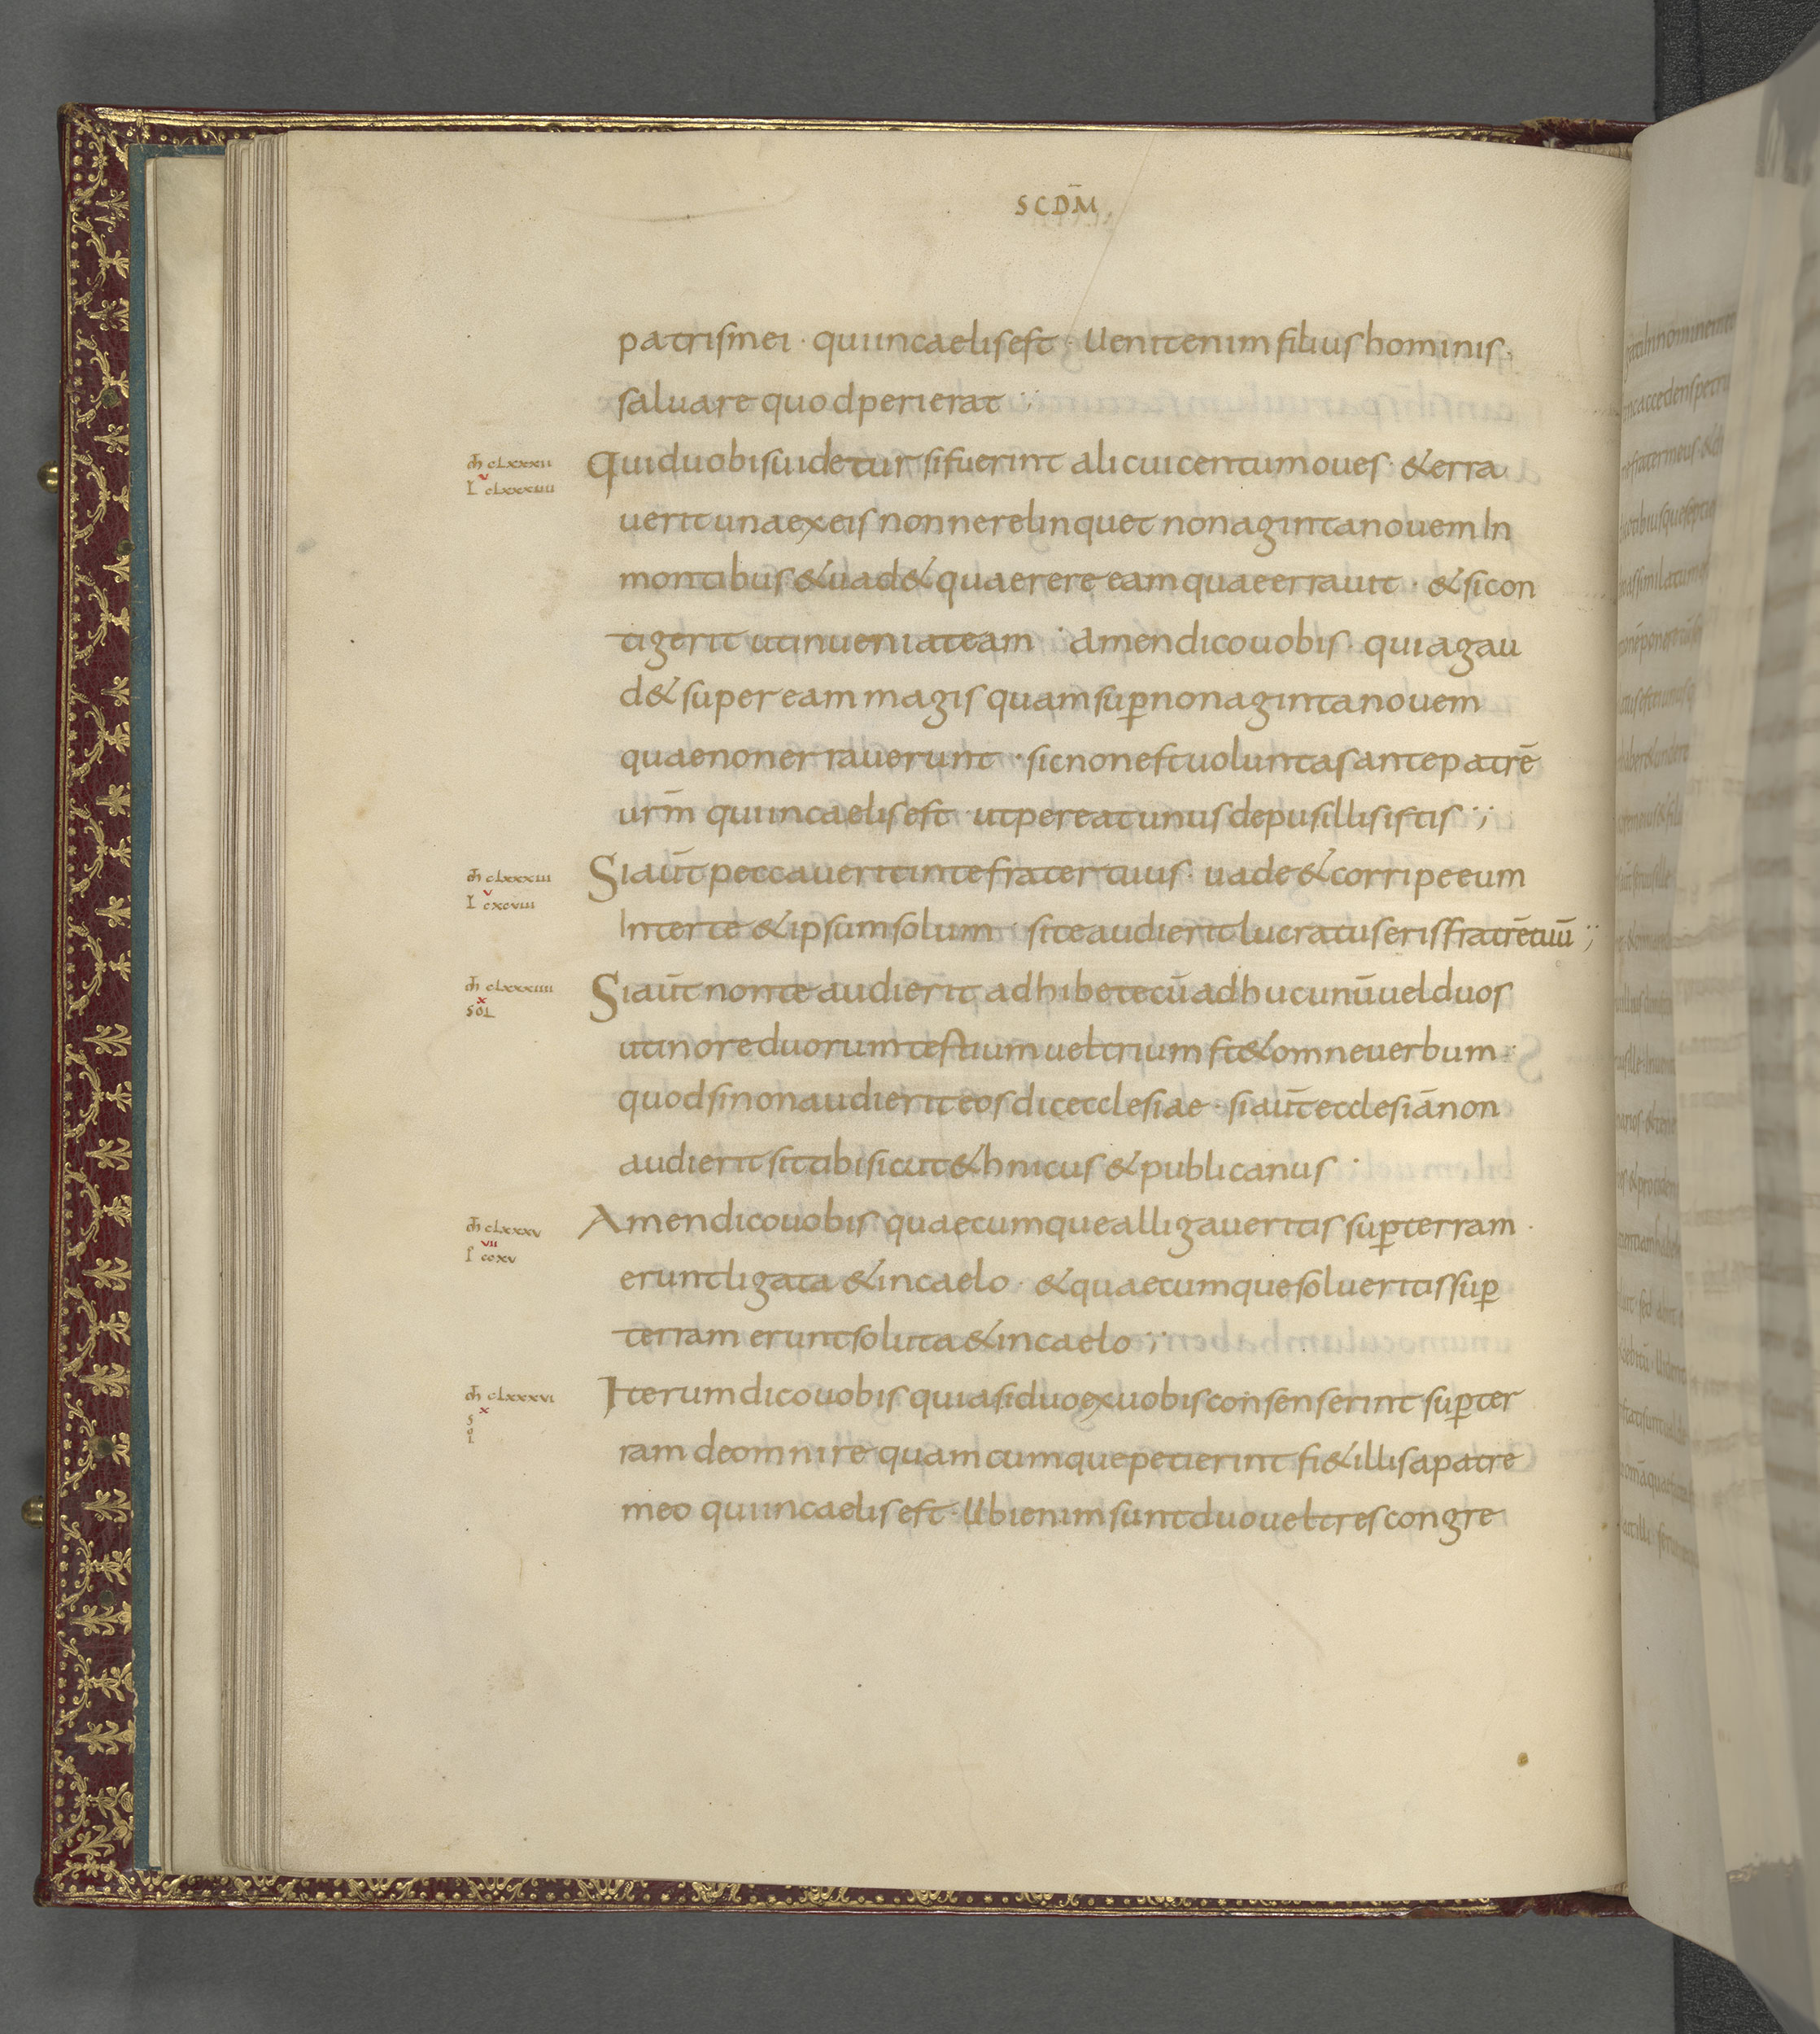 SCDM̄
patris mei · qui in caelis est · Uenit enim filius hominis ·
saluare quod perierat :;
m̄ clxxxii
v
L clxxxviiii
Quid uobis uidetur si fuerint alicui centum oues · & erra
uerit una ex eis nonne relinquet nonaginta nouem In
montibus & uad& quaerere eam quae errauit · & si con
tigerit ut inueniat eam · amen dico uobis · quia gau
d& super eam magis quam sup̄ nonaginta nouem
quae non errauerunt · sic non est uoluntas ante patrē
ur̄m qui in caelis est · ut pereat unus de pusillis istis :;
m̄ clxxxiii
v
L cxcviii
Si aūt peccauerit in te frater tuus · uade & corripe eum
Inter te & ipsum solum · si te audierit lucratus eris fratrē tuū :;
m̄ clxxxiiii
x
SOL
Si aūt non te audierit adhibe tecū adhuc unū uel duos
ut in ore duorum testium uel trium st& omne uerbum ·
quod si non audierit eos dic ecclesiae · si aūt ecclesiā non
audierit sit tibi sicut &hnicus & publicanus ·
m̄ clxxxv
vii
I ccxv
Amen dico uobis quaecumque alligaueritis sup̄ terram ·
erunt ligata & in caelo · & quaecumque solueritis sup̄
terram erunt soluta & in caelo :;
m̄ clxxxvi
x
SOL
Iterum dico uobis quia si duo ex uobis consenserint sup̄ ter
ram de omni re quamcumque petierint fi& illis a patre
meo qui in caelis est · Ubi enim sunt duo uel tres congre